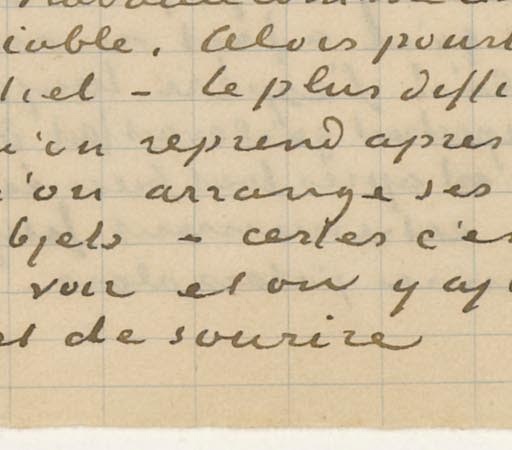 iable. Alors pour
tiel - le plus diffi
u'on reprend apres
u'on arrange ses
bjets - certes c'es
voir et on y aj
et de sourire